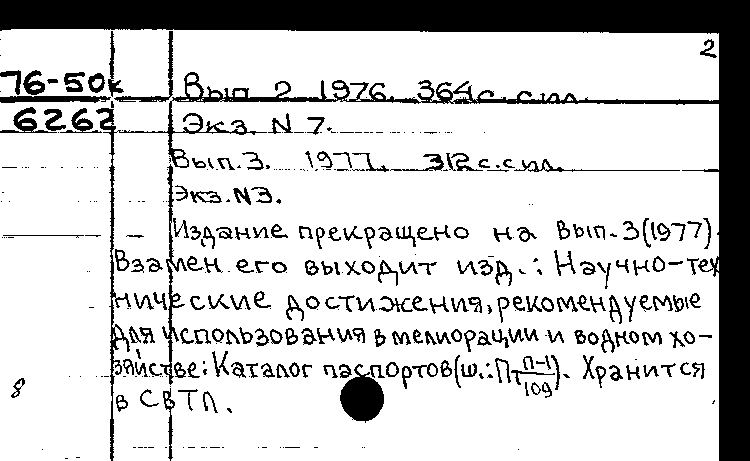 2
76-50к Вып 2 1976. 364с. с ил.
6262 Экз. N 7.
Вып. 3. 1977. 312с. с ил.
Экз. N3.
Издание прекращено на вып. 3(1977).
Взамен его выходит изд.: Научно-тех
нические достижения, рекомендуемые
для использования в мелиорации и водном хо-
зяйстве: Каталог паспортов (ш.: Пт п-1/109). Хранится
8 в СВТЛ.